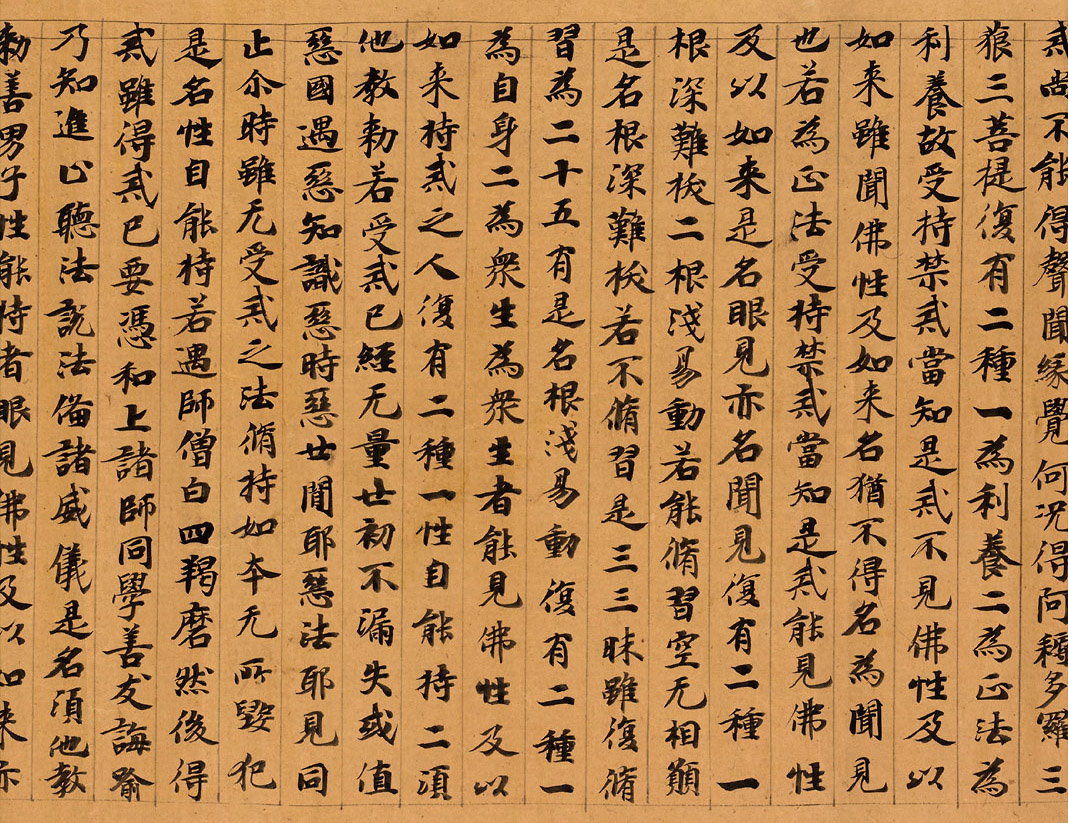 貳尚不能得聲聞緣覺何況得阿耨多羅三
狼三菩提復有二種一為利養二為正法為
利養故受持禁貳當知是貳不見佛性及以
如来雖聞佛性及如来名猶不得名為聞見
也若為正法受持禁貳當知是貳能見佛性
及以如来是名眼見亦名聞見復有二種一
根深難拔二根淺易動若能脩習空无相願
是名根深難拔若不脩習是三三昧雖復脩
習為二十五有是名根淺易動復有二種一
為自身二為衆生為衆生者能見佛性及以
如来持貳之人復有二種一性自能持二須
他教勑若受貳已經无量世初不漏失或值
惡國遇惡知識惡時惡世聞耶惡法耶見同
止尒時雖无受貳之法脩持如本无所毀犯
是名性自能持若遇師僧白四羯磨然後得
貳雖得貳已要憑和上諸師同學善友誨喻
乃知進止聽法說法俻諸威儀是名須他教
勑善男子性能持者眼見佛性及以如来亦